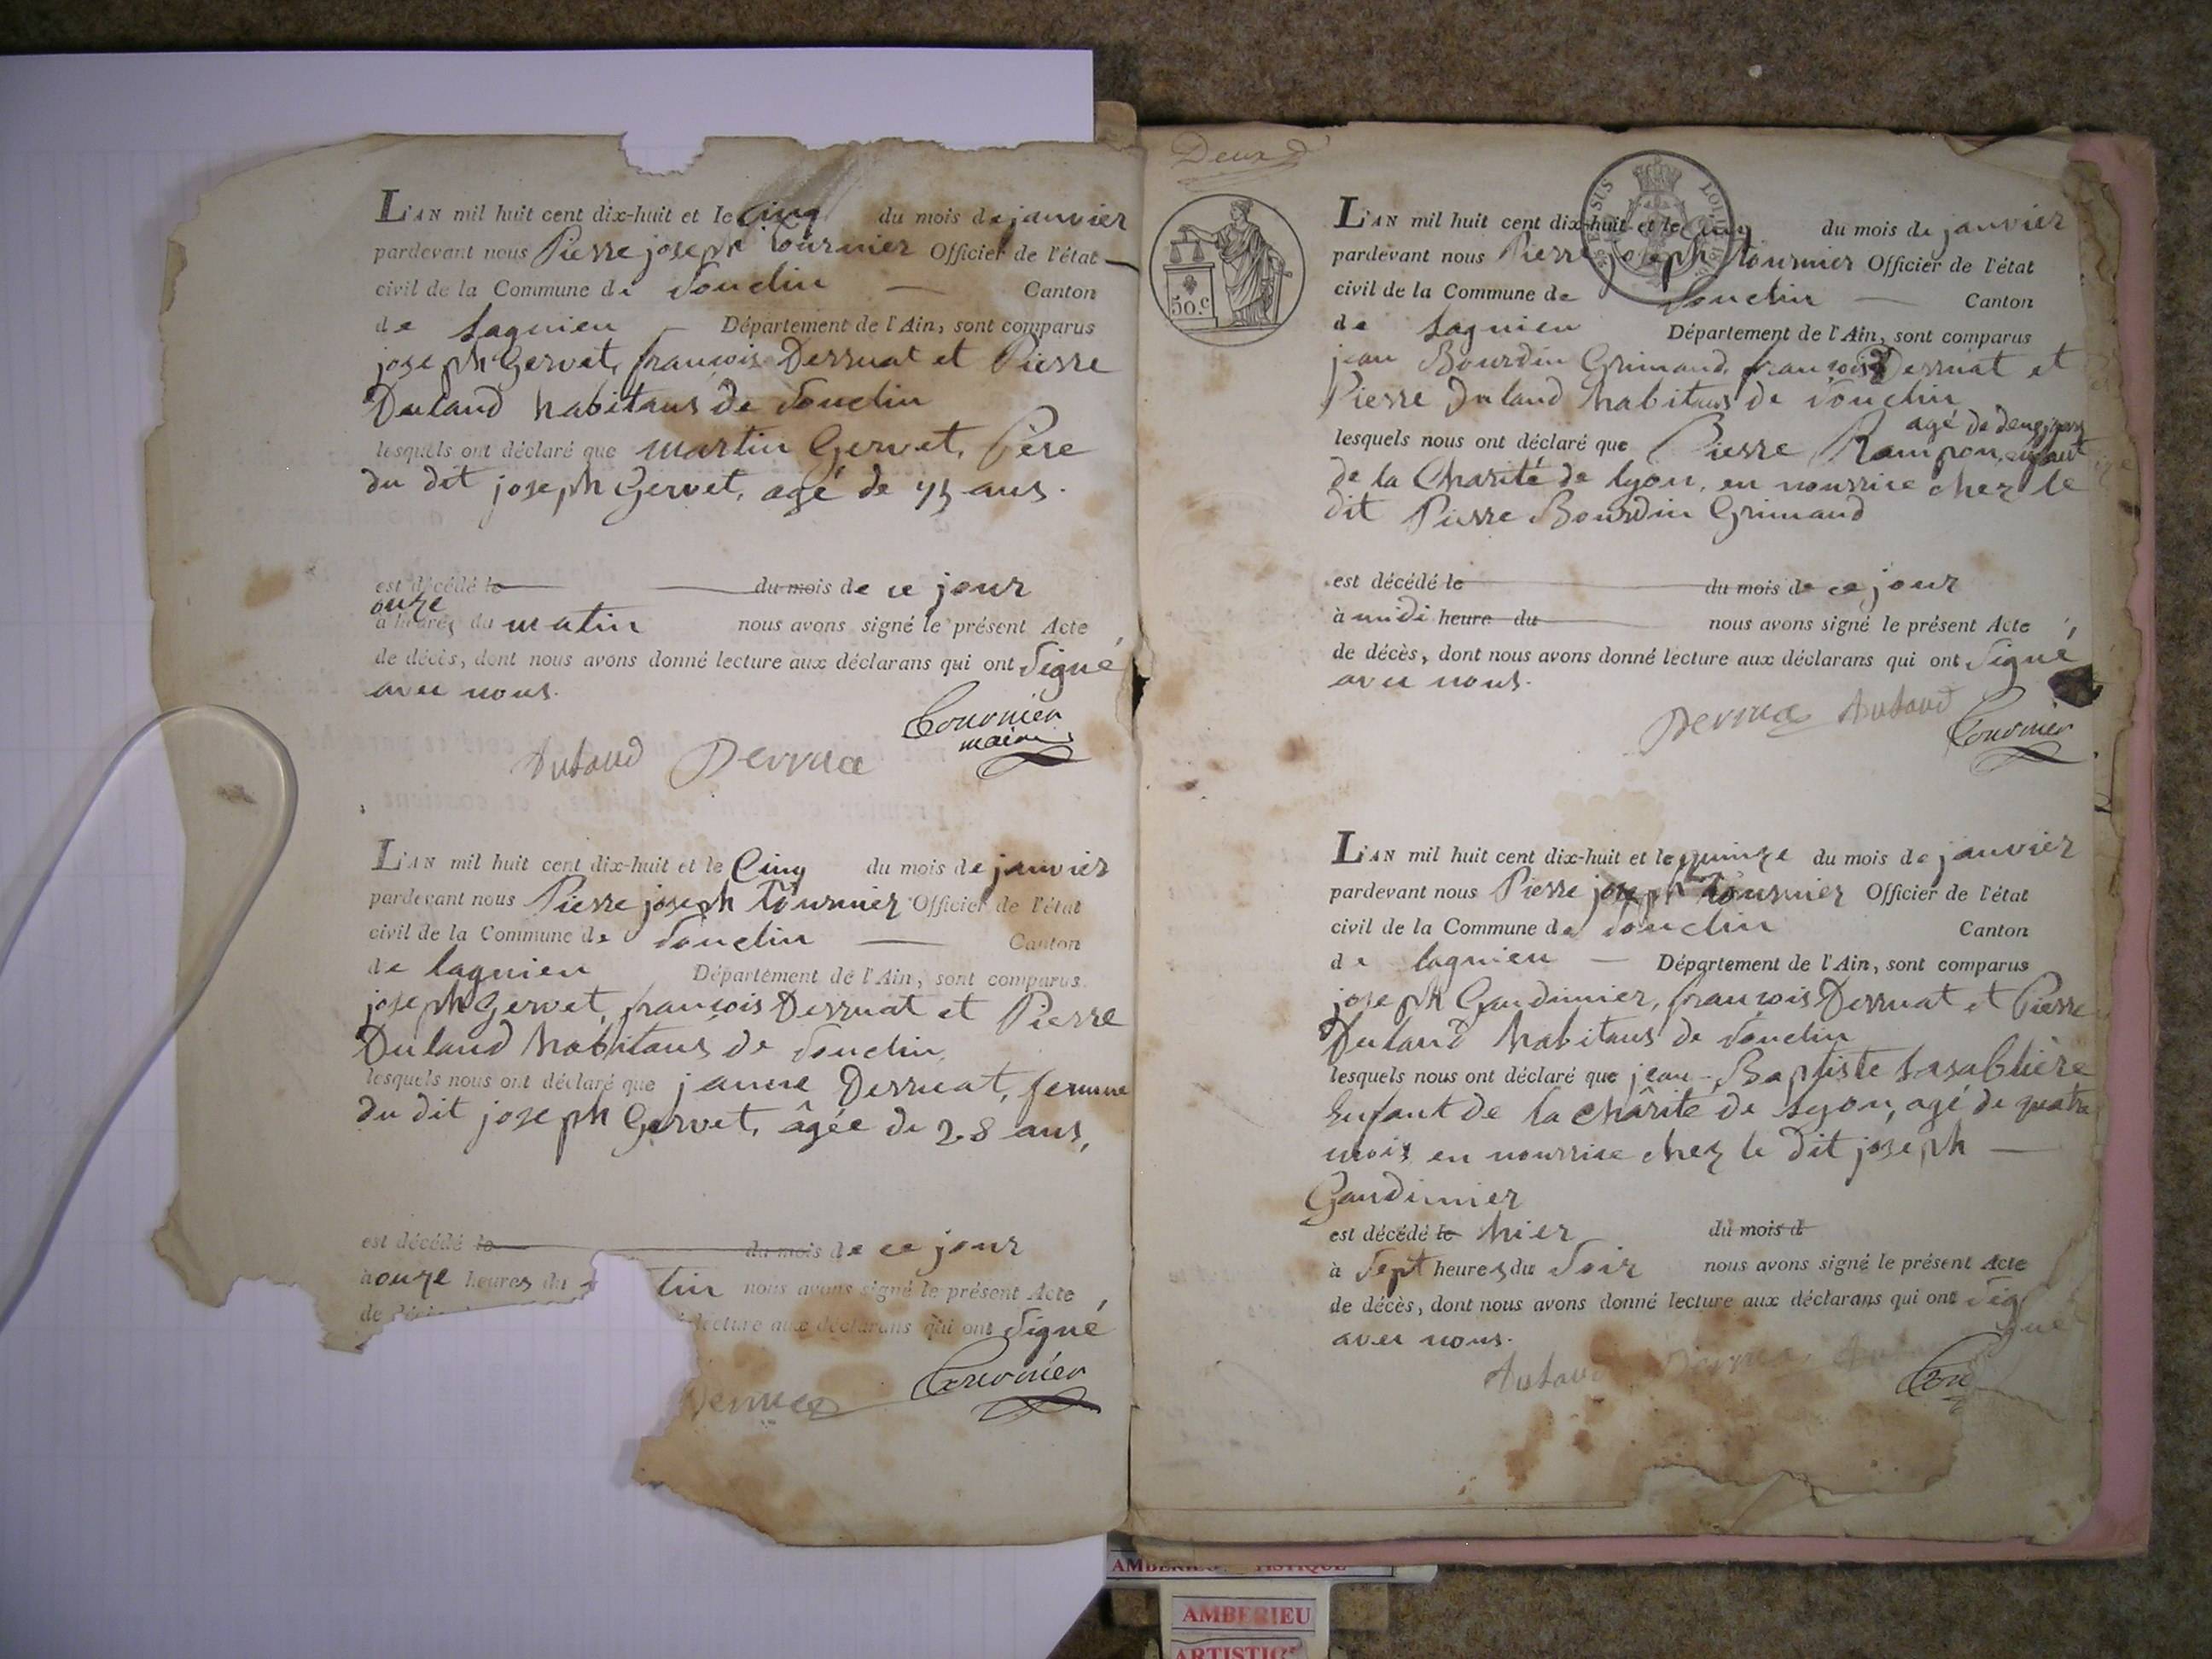 L'AN mil huit cent dix-huit et le Cinq du mois de janvier
pardevant nous Pierre joseph Tournier Officier de l'état
civil de la Commune de Souclin Canton
de Lagnieu Département de l'Ain, sont comparus
joseph Gervet, françois Derruat et Pierre
Dulaud habitans de Souclin
lesquels ont déclaré que Martin Gervet, Père
du dit joseph Gervet, agé de ans.
est décédé le du mois de ce jour
onze
à heures du matin nous avons signé le présent Acte
de décès, dont nous avons donné lecture aux déclarans qui ont Signé
avec nous.
Tournier
maire
Dulaud Derrua
L'AN mil huit cent dix-huit et le Cinq du mois de janvier
pardevant nous Pierre joseph Tournier Officier de l'état
civil de la Commune de Souclin Canton
de lagnieu Département de l'Ain, sont comparus
joseph Gervet, françois Derruat et Pierre
Dulaud habitans de Souclin,
lesquels nous ont déclaré que janne Derruat, femme
du dit joseph Gervet, âgée de 28 ans,
est décédé le du mois de ce jour
à onze heures du tin nous avons signé le présent Acte
de lecture aux déclarans qui ont Signé
Derrua Tournier
Deux
50.c
L'AN mil huit cent dix-huit et le Cinq du mois de janvier
pardevant nous Pierre joseph Tournier Officier de l'état
civil de la Commune de Souclin Canton
de Lagnieu Département de l'Ain, sont comparus
jean Bourdin Grimaud, françois Derruat et
Pierre Dulaud habitans de Souclin
agé de deux jours
lesquels nous ont déclaré que Pierre Rampon, enfant
de la Charité de lyon, en nourrice chez le
dit Pierre Bourdin Grimaud
est décédé le du mois de ce jour
à midi heure du nous avons signé le présent Acte
de décès, dont nous avons donné lecture aux déclarans qui ont Signé
avec nous.
Derrua Dulaud Tournier
L'AN mil huit cent dix-huit et le quinze du mois de janvier
pardevant nous Pierre joseph Tournier Officier de l'état
civil de la Commune de Souclin Canton
de lagnieu Département de l'Ain, sont comparus
joseph Gandinnier, françois Derruat et Pierre
Dulaud habitans de Souclin
lesquels nous ont déclaré que jean-Baptiste Lasablière
Enfant de la Charité de Lyon, agé de quatre
mois en nourrice chez le dit joseph
Gandinnier
est décédé le hier du mois d
à Sept heures du Soir nous avons signé le présent Acte
de décès, dont nous avons donné lecture aux déclarans qui ont Sig
gné
avec nous.
Dulaud Derrua
AMBERIEU
AMBERIEU
ARTISTIQ